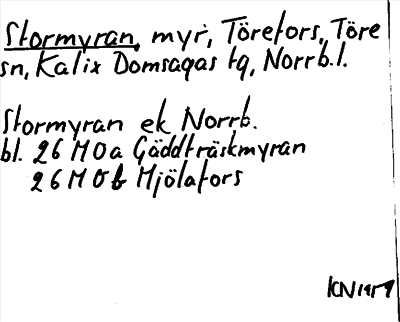 Stormyran, myr, Törefors, Töre
sn, Kalix Domsagas tg, Norrb.l.
Stormyran ek Norrb.
bl. 26 M 0a Gäddträskmyran
26 M 0b Mjölafors